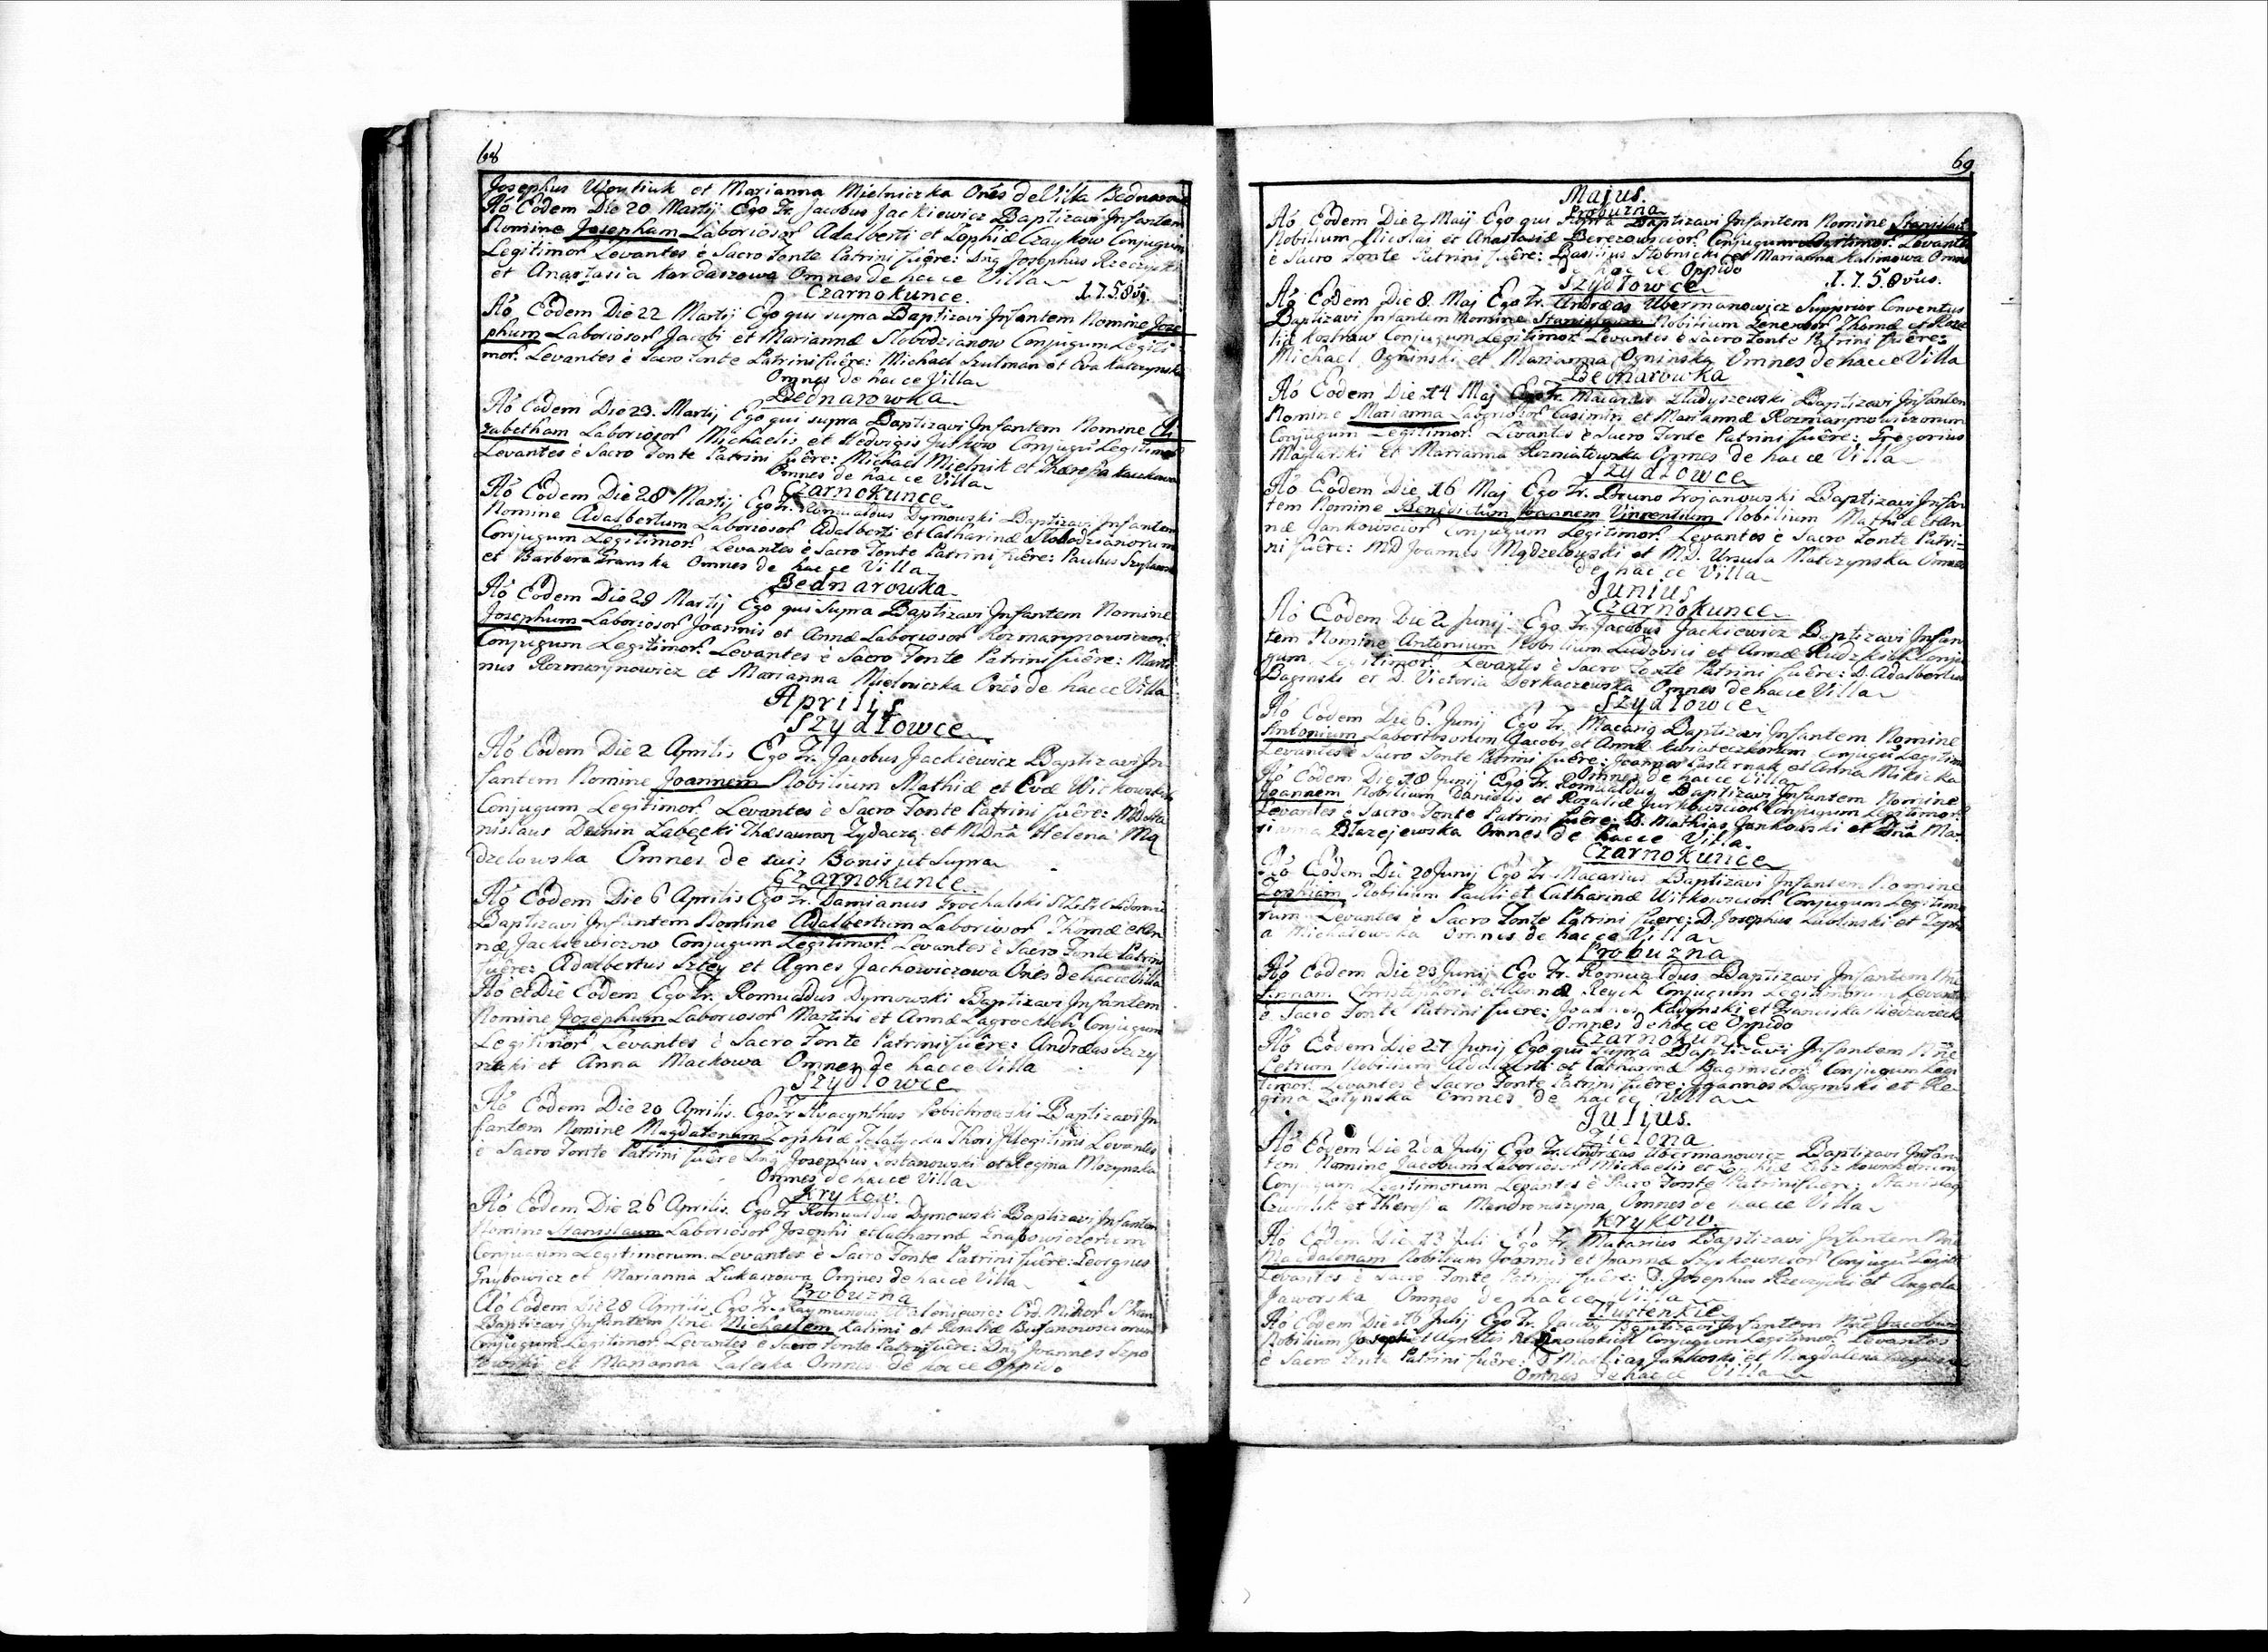 68
Josephus Woytiuk et Marianna Mielniczka Ones de Villa Bednarow
Aō Eodem Die 20 Martij Ego Fr. Jacobus Jackiewicz Baptizavi Infantem
Nomine Josepham Laboriosor Adalberti et Zophiæ Czaykow Conjugum
Legitimor Levantes è Sacro Fonte Patrini fuêre: Dng Josephus Rzeczycki
et Anastasia Kardaszowa Omnes de hacce Villa
Czarnokunce. 1.7.5.8
Aō Eodem Die 22 Martij Ego qui supra Baptizavi Infantem Nomine Jose
phum Laboriosor Jacobi et Mariannæ Slobodzianow Conjugum Legiti
mor. Levantes è Sacro Fonte Patrini fuêre: Michael Szulman et Eva Kaczynska
Omnes de hacce Villa
Bednarowka
Aō Eodem Die 23. Martij Ego qui supra Baptizavi Infantem Nomine Eli
zabetham Laboriosor Michaelis et Hedvigis Juskow Conjugū Legitimor
Levantes è Sacro Fonte Patrini fuêre: Michael Mielnik et Theresia
Omnes de hacce Villa
Czarnokunce
Aō Eodem Die 28 Martij Ego Fr. Romualdus Dymowski Baptizavi Infantem
Nomine Adalbertum Laboriosor Adalberti et Catharinæ Slobodzianorum
Conjugum Legitimor. Levantes è Sacro Fonte Patrini fuêre: Paulus
et Barbara Franska Omnes de hacce Villa
Bednarowka
Aō Eodem Die 29 Martij Ego qui Supra Baptizavi Infantem Nomine
Josephum Laboriosor Joannis et Annæ Laboriosor Rozmarynowiczor
Conjugum Legitimor. Levantes è Sacro Fonte Patrini fuêre: Marti
nus Rozmarynowicz et Marianna Mielniczka Onēs de hacce Villa
Aprilis
Szydłowce
Aō Eodem Die 2 Aprilis Ego Fr. Jacobus Jackiewicz Baptizavi In
fantem Nomine Joannem Nobilium Mathiæ et Evæ Witkowskich
Conjugum Legitimor. Levantes è Sacro Fonte Patrini fuêre: MD Sta
nislaus Dunin Łabęcki Thesauran Zydacza et MDna Helena Mą
dzelowska Omnes de suis Bonis ut Supra
Czarnokunce
Aō Eodem Die 6 Aprilis Ego Fr. Damianus Grochalski
Baptizavi Infantem Nomine Adalbertum Laboriosor Thomæ et An
næ Jackiewiczow Conjugum Legitimor. Levantes è Sacro Fonte Patrini
fuêre: Adalbertus Szley et Agnes Jachowiczowa Ones de hacce Villa
Aō et Die Eodem Ego Fr. Romualdus Dymowski Baptizavi Infantem
Nomine Josephum Laboriosor Martini et Annæ Zagrockich Conjugum
Legitimor Levantes è Sacro Fonte Patrini fuêre: Andreas Szzy
nski et Anna Mackowa Omnes de hacce Villa
Szydłowce
Aō Eodem Die 20 Aprilis. Ego Fr Hyacynthus Baptizavi In
fantem Nomine Magdalenam Zophiæ Thori Illegitimi Levantes
è Sacro Fonte Patrini fuêre Dng Josephus Sostanowski et Regina Mozynska
Omnes de hacce Villa
Krykow.
Aō Eodem Die 26 Aprilis. Ego Fr Romualdus Dymowski Baptizavi Infantem
Nomine Stanislaum Laboriosor Josephi et Catharinæ
Conjugum Legitimorum. Levantes è Sacro Fonte Patrini fuêre: Georgius
Grybowicz et Marianna Łukaszowa Omnes de hacce Villa
Probuzna
Aō Eodem Die 28 Aprilis Ego Fr. Raymundus Ord. Minor
Baptizavi Infantem Nnē Michaelem Kalimi et Rosaliæ
Conjugum Legitimor. Levantes è Sacro Fonte Patrini fuêre: Dng Joannes Szpo
towski et Marianna Zaleska Omnes de hacce Oppido
69
Majus.
Probuzna
Aō Eodem Die 2 Maij Ego qui supra Baptizavi Infantem Nomine Stanislau
Nobilium Nicolai et Anastasiæ Berezowscior. Conjugum Legitimor. Levantes
è Sacro Fonte Patrini fuêre: Basilius Słobnicki et Marianna Kalimowa Omnes
de hacce Oppido
Szydłowce 1.7.5.8vus.
Aō Eodem Die 8. Maj Ego Fr. Andreas Ubermanowicz Supprior Conventus
Baptizavi Infantem Nomine Stanislaum Nobilium Generosor Thomæ et Roza
liæ Kostraw Conjugum Legitimor Levantes è Sacro Fonte Patrini fuêre:
Michael Oginski et Marianna Oginska Omnes de hacce Villa
Bednarowka
Aō Eodem Die 14 Maj Ego Fr. Macarius Hladyszewski Baptizavi Infantem
Nomine Marianna Laboriosor Casimiri et Mariannæ Rozmarynowiczorum
Conjugum Legitimor. Levantes è Sacro Fonte Patrini fuêre: Gregorius
Maylarski et Marianna Rozniatowska Omnes de hacce Villa
Szydłowce
Aō Eodem Die 16 Maj Ego Fr. Bruno Trojanowski Baptizavi Infan
tem Nomine Benedictum Joannem Vincentium Nobilium Mathiæ et An
næ Jankowscior Conjugum Legitimor. Levantes è Sacro Fonte Patri
ni fuêre: MD Joannes Mądzelewski et M.D. Ursula Matczynska Omnes
de hacce Villa
Junius
Czarnokunce
Aō Eodem Die 2 Junij Ego Fr. Jacobus Jackiewicz Baptizavi Infan
tem Nomine Antonium Nobilium Ludovici et Annæ Rudzkich Conju
gum Legitimor. Levantes è Sacro Fonte Patrini fuêre: D. Adalbertus
Baginski et D. Victoria Derkaczewska Omnes de hacce Villa
Szydłowce
Aō Eodem Die 6. Junij Ego Fr. Macarig Baptizavi Infantem Nomine
Antonium Laboriosorum Jacobi et Annæ Kwiateczkorum Conjugū Legitim
Levantes è Sacro Fonte Patrini fuêre: Joannes Pasternak et Anna Mikicka
Omnes de hacce Villa
Aō Eodem Die 18 Junij Ego Fr. Romualdus Baptizavi Infantem Nomine
Joannem Nobilium Danielis et Rozaliæ Jurkowscior Conjugum Legitimor.
Levantes è Sacro Fonte Patrini fuêre: D. Mathias Jankowski et Dna Ma
rianna Błazejewska Omnes de hacce Villa.
Czarnokunce
Aō Eodem Die 20 Junij Ego Fr. Macarius Baptizavi Infantem Nomine
Zophiam Nobilium Pauli et Catharinæ Witkowscior Conjugum Legitimo
rum Levantes è Sacro Fonte Patrini fuêre: D. Josephus Lwolinski et Zoph
a Michałowska Omnes de hacce Villa
Probuzna
Aō Eodem Die 23 Junij Ego Fr. Romualdus Baptizavi Infantem Nnē
Annam Christophori et Annæ Reych Conjugum Legitimorum Levantes
è Sacro Fonte Patrini fuêre: Joannes Kadynski et Franciska
Omnes de hacce Oppido
Czarnokunce
Aō Eodem Die 27 Junij Ego qui supra Baptizavi Infantem Nnē
Petrum Nobilium Adalberti et Catharinæ Baginscior Conjugum Legi
timor. Levantes è Sacro Fonte Patrini fuêre: Joannes Baginski et Re
gina Zołynska Omnes de hacce Villa
Julius.
Zielona
Aō Eodem Die 2da Julij Ego Fr. Andreas Ubermanowicz Baptizavi Infan
tem Nomine Jacobum Laboriosor Michaelis et Zophiæ
Conjugum Legitimorum Levantes è Sacro Fonte Patrini fuêre: Stanislag
et Theresia Mandroniszyna Omnes de hacce Villa
Krykow.
Aō Eodem Die 13 Juli Ego Fr. Macarius Baptizavi Infantem Nnē
Magdalenam Nobilium Joannis et Joannæ Conjugū Legit
Levantes è Sacro Fonte Patrini fuêre: D. Josephus Rzeczycki et Angela
Jaworska Omnes de hacce Villa
Czarnokunce
Aō Eodem Die 16 Julij Ego Fr. Jacobg Baptizavi Infantem Nnē Jacobum
Nobilium Josephi et Agnetis Conjugum Legitimor. Levantes
è Sacro Fonte Patrini fuêre: D Mathias Jankoski et Magdalena
Omnes de hacce Villa